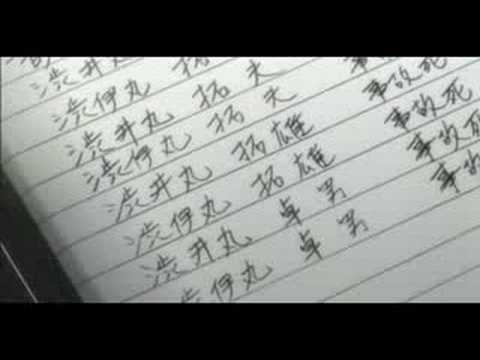 渋井丸
渋伊丸 拓
渋井丸 拓夫
渋伊丸 拓夫 事故死
渋井丸 拓雄 事故死
渋伊丸 拓雄 事故死
渋井丸 卓男 事故
渋伊丸 卓男